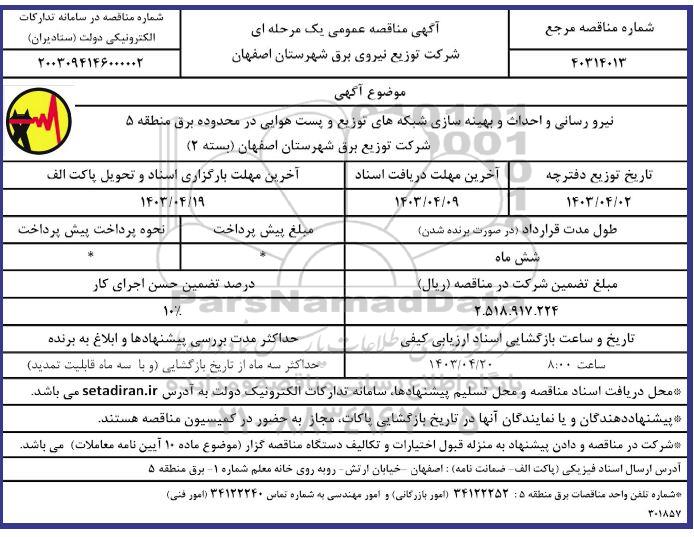 شماره مناقصه مرجع
۴۰۳۱۴۰۱۳
آگهی مناقصه عمومی یک مرحله ای
شرکت توزیع نیروی برق شهرستان اصفهان
شماره مناقصه در سامانه تدارکات
الکترونیکی دولت (ستادیران)
۲۰۰۳۰۹۴۱۴۶۰۰۰۰۰۲
موضوع آگهی
نیرو رسانی و احداث و بهینه سازی شبکه های توزیع و پست هوایی در محدوده برق منطقه ۵
شرکت توزیع برق شهرستان اصفهان (بسته ۲)
تاریخ توزیع دفترچه
۱۴۰۳/۰۴/۰۲
آخرین مهلت دریافت اسناد
۱۴۰۳/۰۴/۰۹
آخرین مهلت بارگزاری اسناد و تحویل پاکت الف
۱۴۰۳/۰۴/۱۹
طول مدت قرارداد (در صورت برنده شدن)
شش ماه
مبلغ پیش پرداخت
*
نحوه پرداخت پیش پرداخت
*
مبلغ تضمین شرکت در مناقصه (ریال)
۲.۵۱۸.۹۱۷.۲۲۴
درصد تضمین حسن اجرای کار
۱۰%
تاریخ و ساعت بازگشایی اسناد ارزیابی کیفی
ساعت ۸:۰۰ ۱۴۰۳/۰۴/۲۰
حداکثر مدت بررسی پیشنهادها و ابلاغ به برنده
حداکثر سه ماه از تاریخ بازگشایی (و با سه ماه قابلیت تمدید)
*محل دریافت اسناد مناقصه و محل تسلیم پیشنهادها، سامانه تدارکات الکترونیک دولت به آدرس setadiran.ir می باشد.
*پیشنهاددهندگان و یا نمایندگان آنها در تاریخ بازگشایی پاکات، مجاز به حضور در کمیسیون مناقصه هستند.
*شرکت در مناقصه و دادن پیشنهاد به منزله قبول اختیارات و تکالیف دستگاه مناقصه گزار (موضوع ماده ۱۰ آیین نامه معاملات) می باشد.
آدرس ارسال اسناد فیزیکی (پاکت الف- ضمانت نامه) : اصفهان –خیابان ارتش- روبه روی خانه معلم شماره ۱- برق منطقه ۵
*شماره تلفن واحد مناقصات برق منطقه ۵ : ۳۴۱۲۲۲۵۲ (امور بازرگانی) و امور مهندسی به شماره تماس ۳۴۱۲۲۲۴۰ (امور فنی)
۳۰۱۸۵۷
ParsNamadData